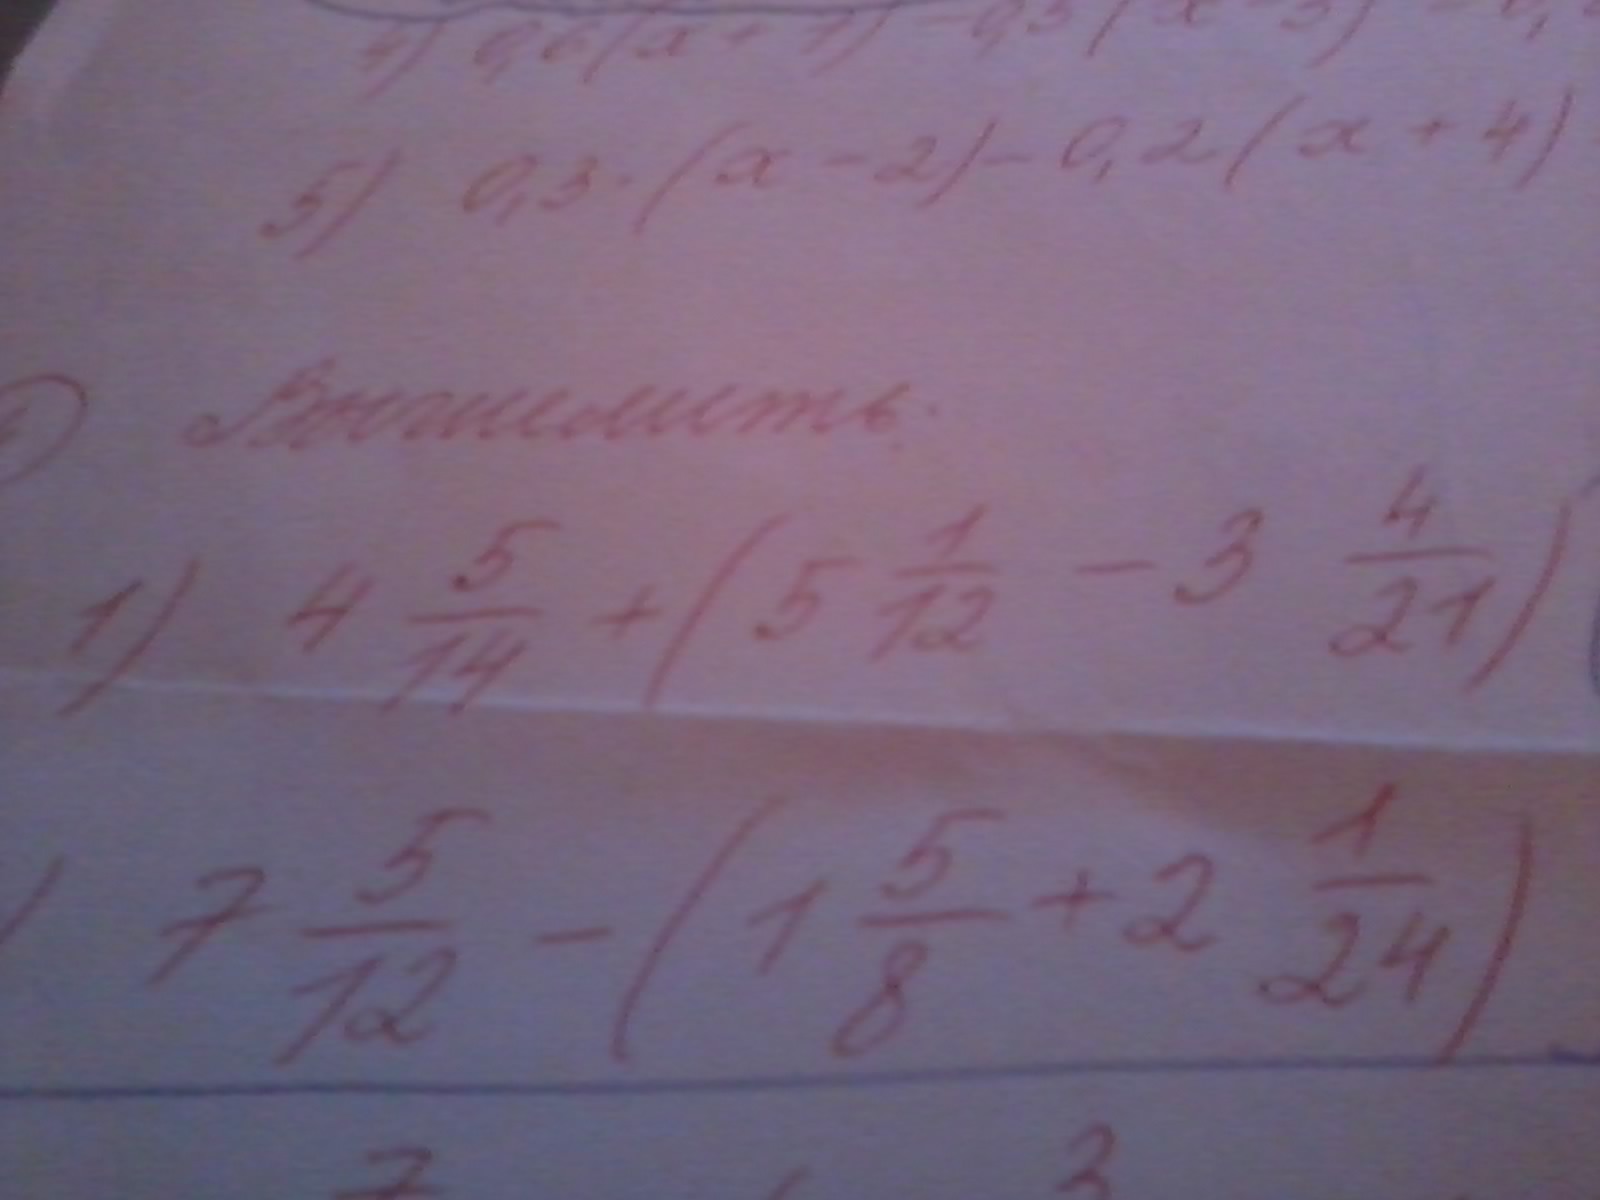 4) 0,6(x + 1) - 0,5(x - 3) = 0,
5) 0,3·(x - 2) - 0,2(x + 4)
Вычислить.
1) 4 5/14 + (5 1/12 - 3 4/21)
) 7 5/12 - (1 5/8 + 2 1/24)
7 3